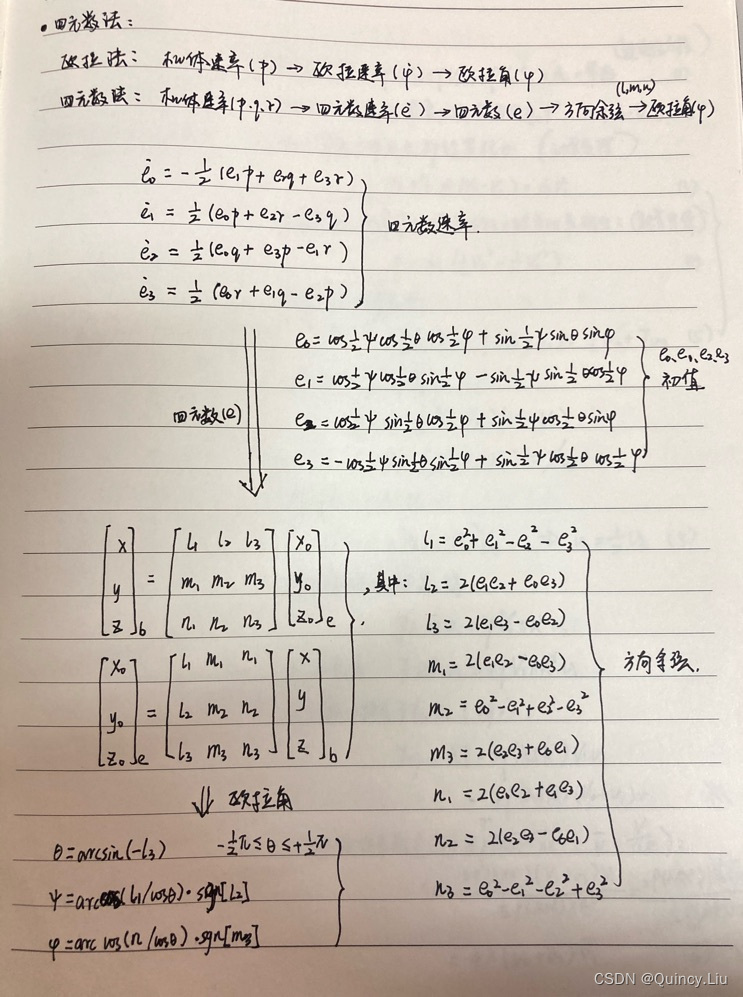 • 四元数法:
欧拉法: 机体速率(p) → 欧拉速率(φ̇) → 欧拉角(φ)
(l,m,n)
四元数法: 机体速率(p,q,r) → 四元数速率(ė) → 四元数(e) → 方向余弦 → 欧拉角(φ)
ė0 = -1/2 (e1p + e2q + e3r)
ė1 = 1/2 (e0p + e2r - e3q)
ė2 = 1/2 (e0q + e3p - e1r)
ė3 = 1/2 (e0r + e1q - e2p)
四元数速率.
四元数(e)
e0 = cos1/2ψ cos1/2θ cos1/2φ + sin1/2ψ sinθ sinφ
e1 = cos1/2ψ cos1/2θ sin1/2φ - sin1/2ψ sin1/2θ cos1/2φ
e2 = cos1/2ψ sin1/2θ cos1/2φ + sin1/2ψ cos1/2θ sinφ
e3 = -cos1/2ψ sin1/2θ sin1/2φ + sin1/2ψ cos1/2θ cos1/2φ
e0、e1、e2、e3
初值
[x y z]b = [l1 l2 l3; m1 m2 m3; n1 n2 n3] [x0 y0 z0]e
[x0 y0 z0]e = [l1 m1 n1; l2 m2 n2; l3 m3 n3] [x y z]b
, 其中:
l1 = e0² + e1² - e2² - e3²
l2 = 2(e1e2 + e0e3)
l3 = 2(e1e3 - e0e2)
m1 = 2(e1e2 - e0e3)
m2 = e0² - e1² + e3² - e3²
m3 = 2(e2e3 + e0e1)
n1 = 2(e0e2 + e1e3)
n2 = 2(e2e3 - e0e1)
n3 = e0² - e1² - e2² + e3²
方向余弦.
⇓ 欧拉角
θ = arcsin(-l3) -1/2π ≤ θ ≤ +1/2π
ψ = arccos(l1/cosθ)·sgn[l2]
φ = arc cos(n/cosθ)·sgn[m3]
CSDN @Quincy.Liu